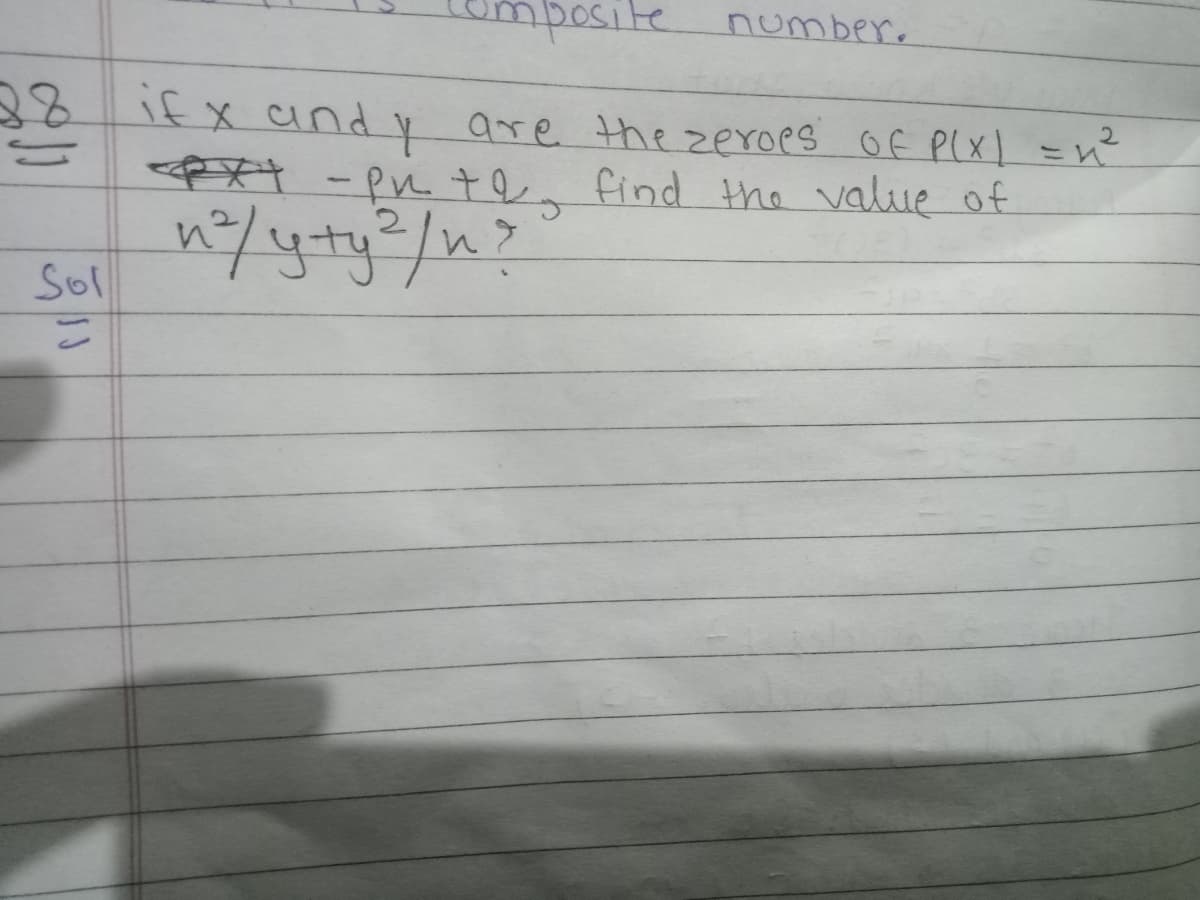 is composite number.
Q8 if x and y are the zeroes of P(x) = x²
- px + q, find the value of
x²/y+y²/x?
Sol